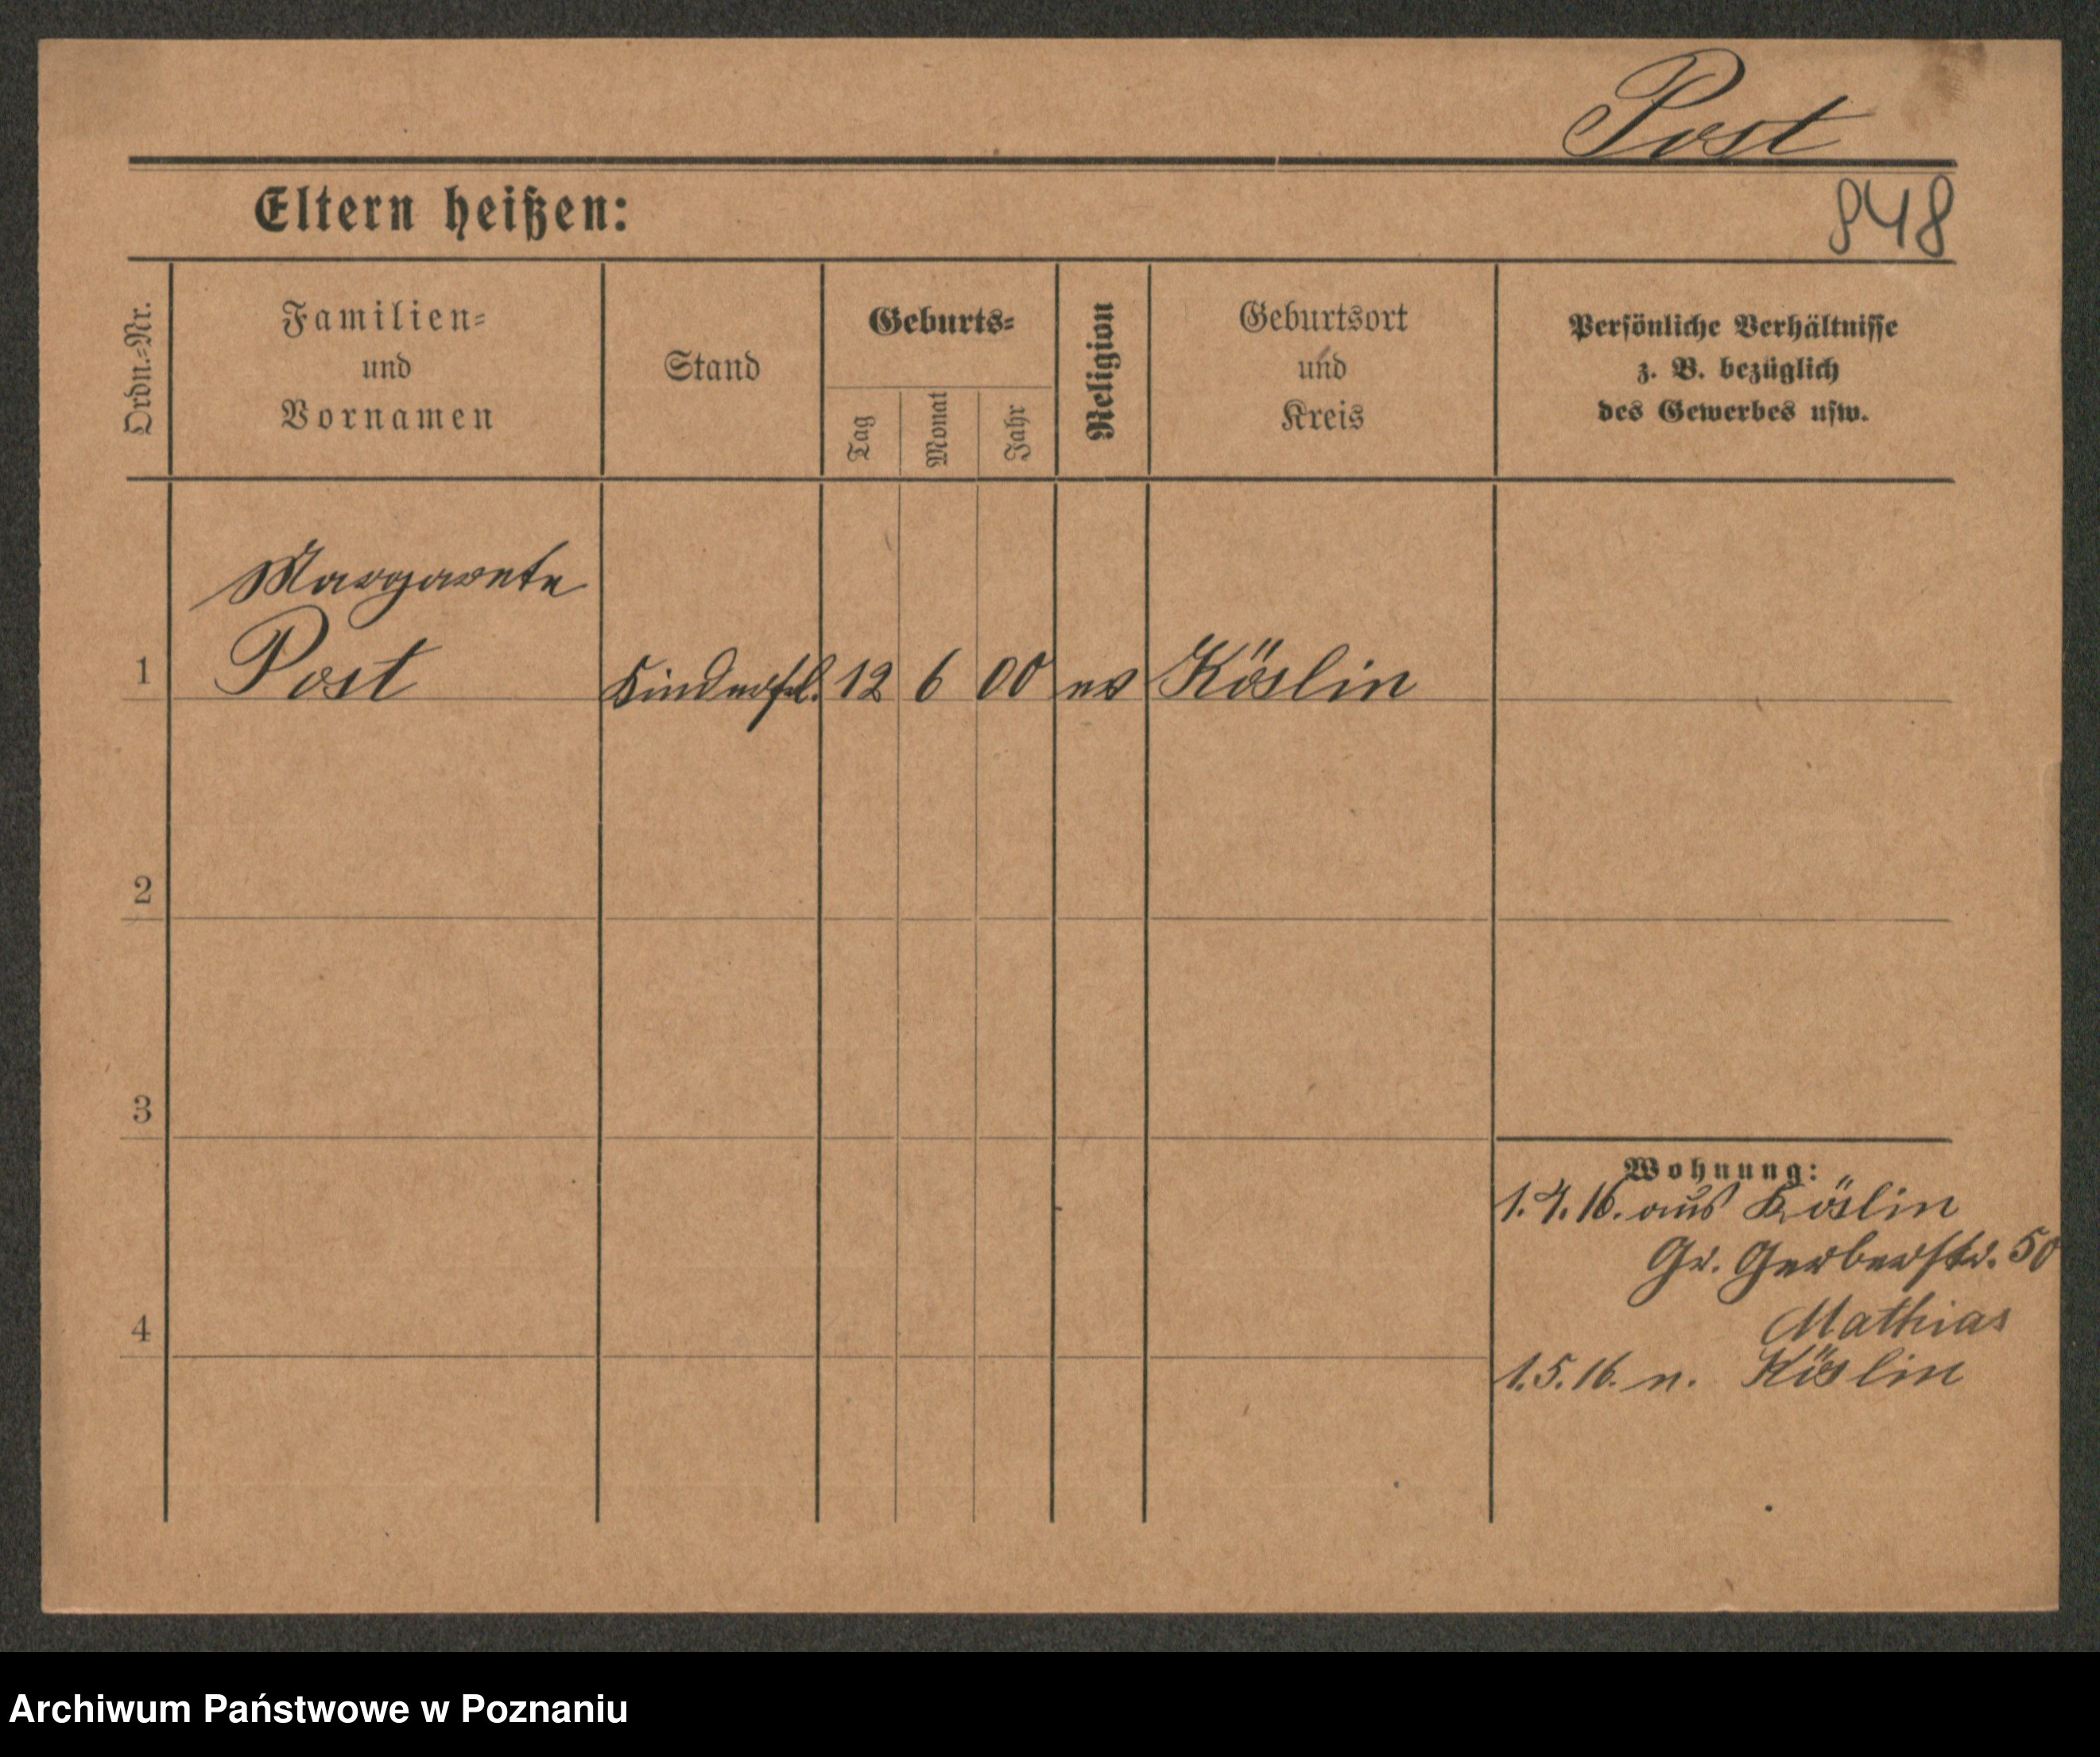 Post
Eltern heißen:
848
Ordn.=Nr.
Familien=
und
Vornamen
Stand
Geburts=
Tag
Monat
Jahr
Religion
Geburtsort
und
Kreis
Persönliche Verhältnisse
z. B. bezüglich
des Gewerbes usw.
Margarete
1 Post Kinderfrl. 12 6 00 ev Köslin
2
3
Wohnung:
1.4.16. aus Köslin
Gr. Gerberstr. 50
Mathias
4
1.5.16. n. Köslin
Archiwum Państwowe w Poznaniu